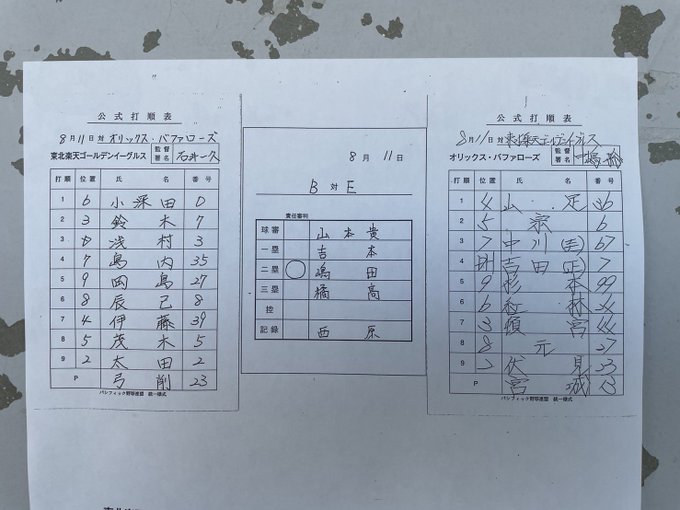 公式打順表
8月11日 対 オリックス・バファローズ
東北楽天ゴールデンイーグルス 監督署名 石井一久
打順 位置 氏名 番号
1 6 小深田 0
2 3 鈴木 7
3 D 浅村 3
4 7 島内 35
5 9 岡島 27
6 8 辰己 8
7 4 伊藤 39
8 5 茂木 5
9 2 太田 2
P 弓削 23
パシフィック野球連盟 統一様式
8月11日
B 対 E
責任審判
球審 山本貴
一塁 吉本
二塁 ○ 嶋田
三塁 橘高
控
記録 西原
公式打順表
8月11日 対 東北楽天ゴールデンイーグルス
オリックス・バファローズ 監督署名
打順 位置 氏名 番号
1 4 山足 36
2 5 宗 6
3 7 中川(圭) 67
4 DH 吉田(正) 7
5 9 杉本 99
6 6 紅林 24
7 3 頓宮 44
8 8 元 27
9 2 伏見 23
P 宮城 13
パシフィック野球連盟 統一様式